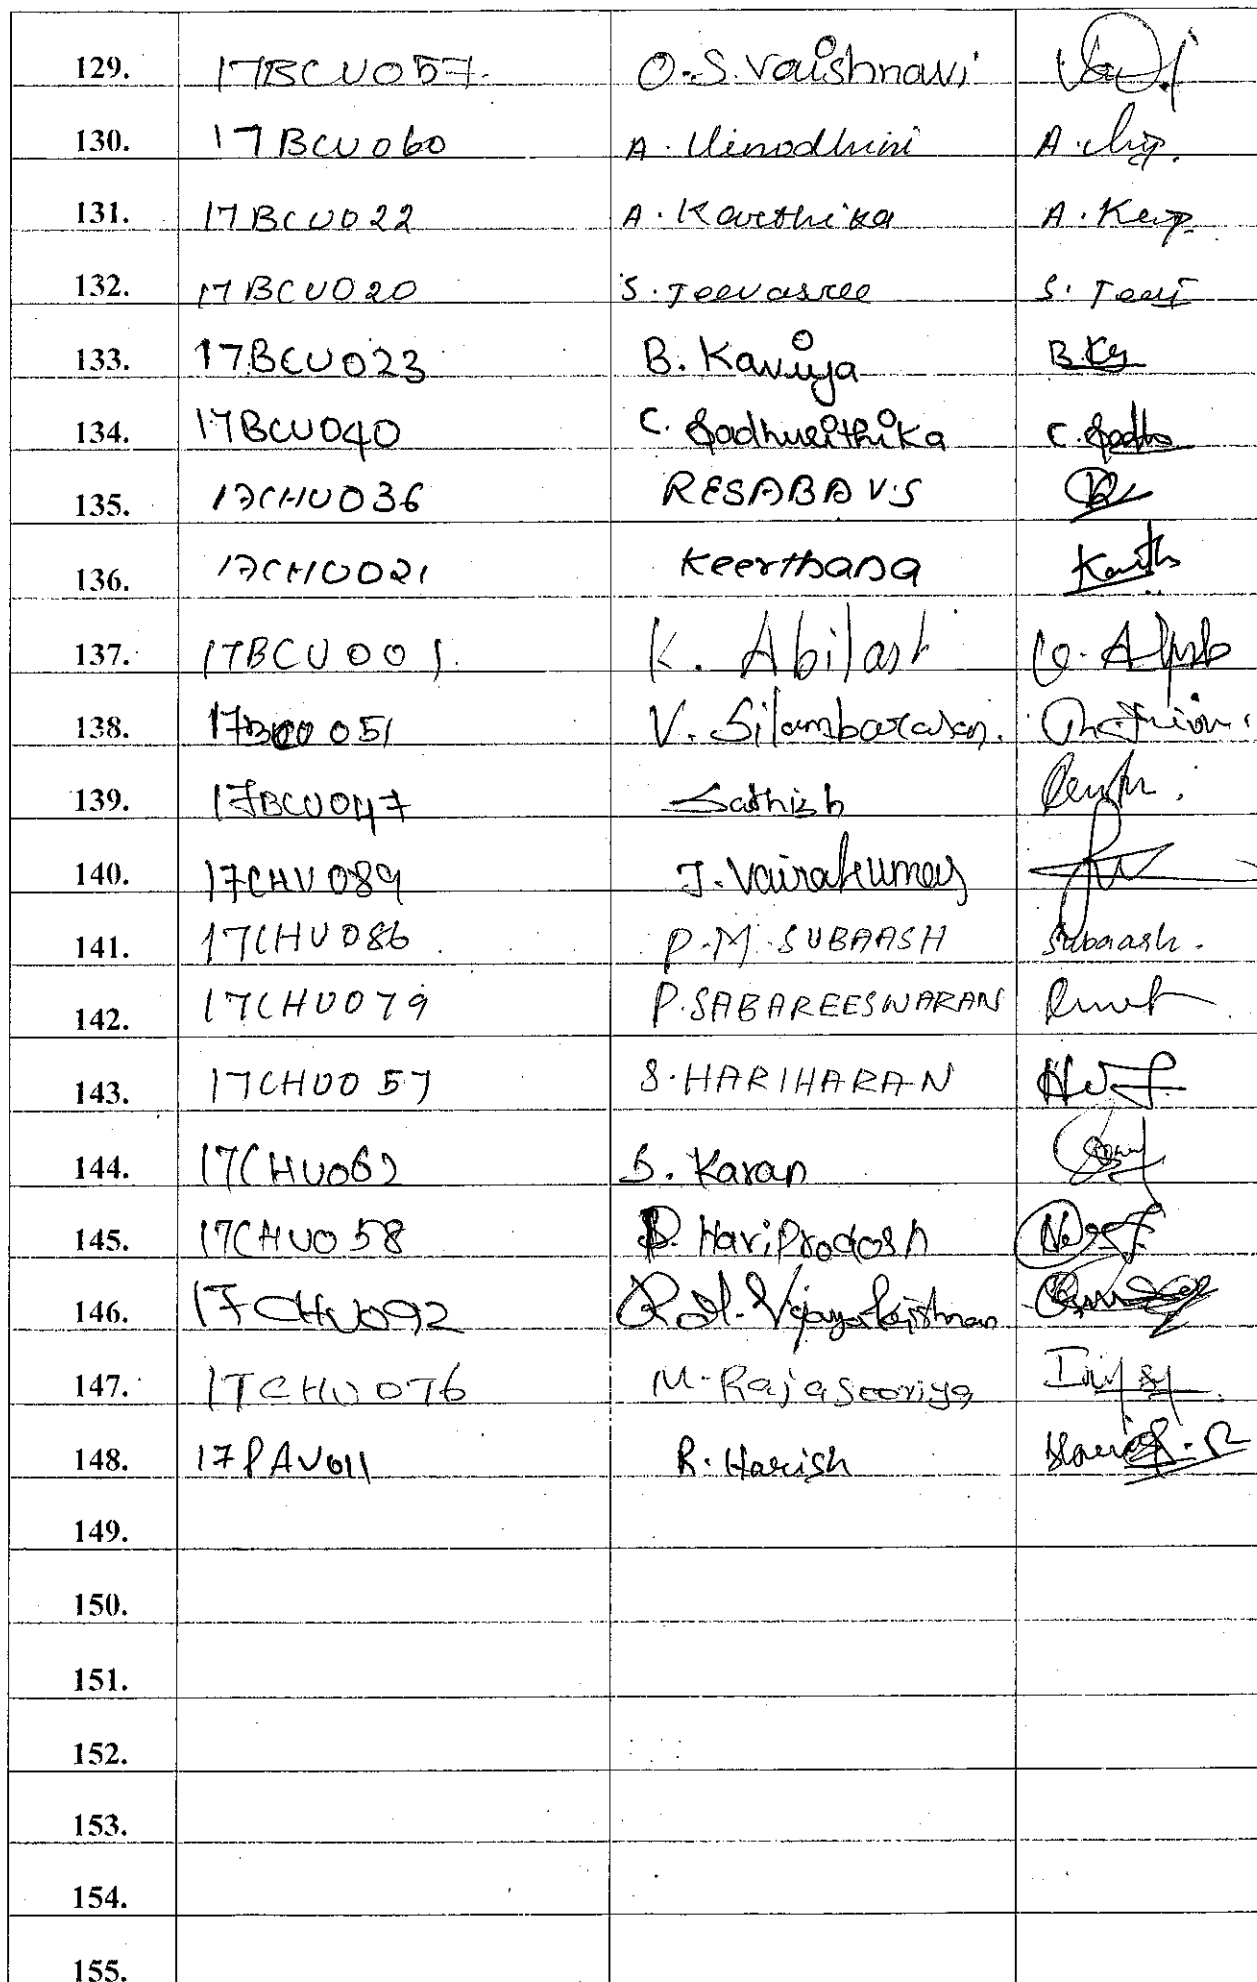 129. 17BCU057. O.S. Vaishnavi
130. 17BCU060 A. Vinodhini
131. 17BCU022 A. Karthika A. Kar
132. 17BCU020 S. Jeevasree S. Jeev
133. 17BCU023 B. Kaviya B.Ky
134. 17BCU040 C. Sadhurithika C. Sadhu
135. 17CHU036 RESABA V.S
136. 17CHU021 Keerthana Keerth
137. 17BCU001. K. Abilash
138. 17BCU051 V. Silambarasan.
139. 17BCU047 Sathish
140. 17CHU089 J. Vairakumar
141. 17CHU086 P.M. SUBAASH Subaash.
142. 17CHU079 P. SABAREESWARAN
143. 17CHU057 S. HARIHARAN
144. 17CHU062 S. Karan
145. 17CHU058 HariPradosh
146. 17CHU092 Vijayakrishnan
147. 17CHU076 M. Rajasooriya
148. 17PAU011 R. Harish
149.
150.
151.
152.
153.
154.
155.